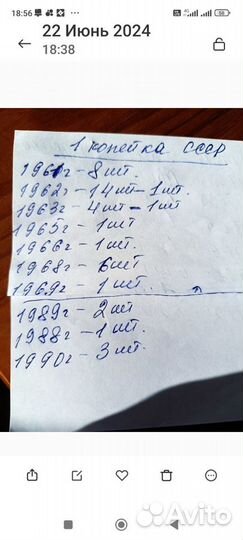 18:56 58
22 Июнь 2024
18:38
1 копейка СССР
1961г - 8 шт.
1962г - 14шт - 1шт.
1963г - 4шт - 1шт
1965г - 1шт
1966г - 1шт.
1968г - 6шт
1969г - 1шт.
1989г - 2шт
1988г - 1шт.
1990г - 3шт.
Avito